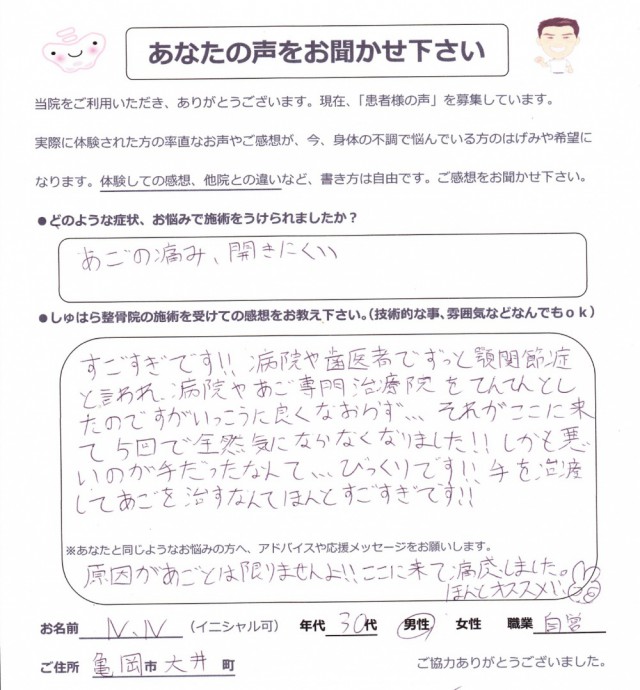 あなたの声をお聞かせ下さい
当院をご利用いただき、ありがとうございます。現在、「患者様の声」を募集しています。
実際に体験された方の率直なお声やご感想が、今、身体の不調で悩んでいる方のはげみや希望に
なります。体験しての感想、他院との違いなど、書き方は自由です。ご感想をお聞かせ下さい。
●どのような症状、お悩みで施術をうけられましたか？
あごの痛み、開きにくい
●しゅはら整骨院の施術を受けての感想をお教え下さい。（技術的な事、雰囲気などなんでもｏｋ）
すごすぎです!! 病院や歯医者でずっと顎関節症
と言われ、病院やあご専門治療院をてんてんとし
たのですがいっこうに良くなおらず、、、それがここに来
て5回で全然気にならなくなりました!! しかも悪
いのが手だったなんて、、、びっくりです!! 手を治療
してあごを治すなんてほんとすごすぎです!!
※あなたと同じようなお悩みの方へ、アドバイスや応援メッセージをお願いします。
原因があごとは限りませんよ!! ここに来て しました。
ほんとオススメ!!
お名前 N.N （イニシャル可） 年代 30代 男性 女性 職業 自営
ご住所 亀岡市 大井 町 ご協力ありがとうございました。